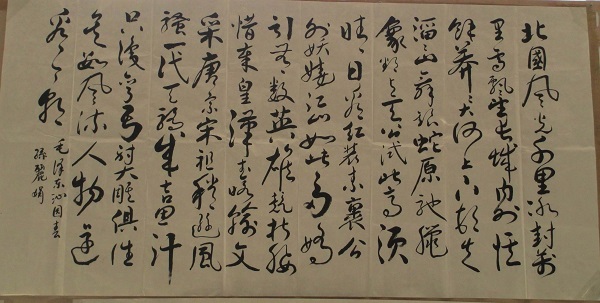 北國风光千里冰封萬
里雪飘望长城内外惟
餘莽莽大河上下顿失
滔滔山舞银蛇原驰蜡
象欲与天公试比高须
晴日看红装素裹分
外妖娆江山如此多娇
引无数英雄竞折腰
惜秦皇漢武略输文
采唐宗宋祖稍逊风
骚一代天骄成吉思汗
只识弯弓射大雕俱往
矣数风流人物还
看今朝
毛泽东沁园春
孫麗娟